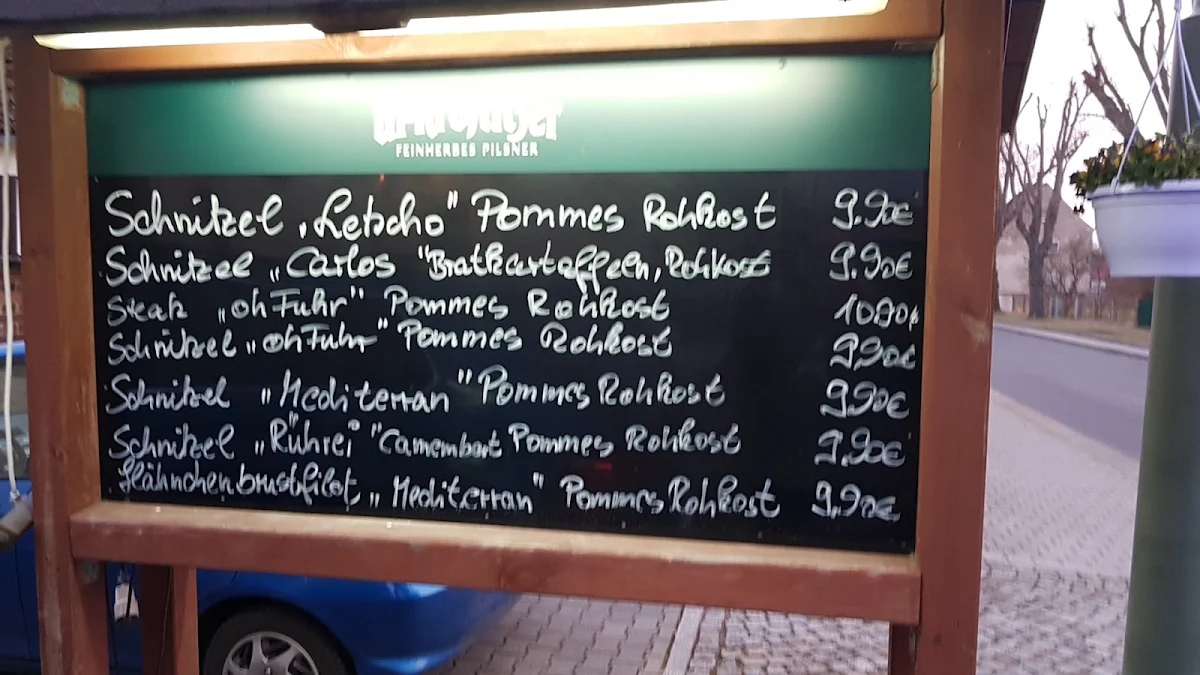 FEINHERBES PILSNER
Schnitzel „Letscho" Pommes Rohkost 9.90€
Schnitzel „Carlos "Bratkartoffeln, Rohkost 9.90€
Steak „oh Fuhr" Pommes Rohkost 1090€
Schnitzel „oh Fuhr" Pommes Rohkost 9,90€
Schnitzel „Mediterran" Pommes Rohkost 9.90€
Schnitzel „Rührei" Camembert Pommes Rohkost 9,90€
Hähnchenbrustfilet „Mediterran" Pommes Rohkost 9,90€